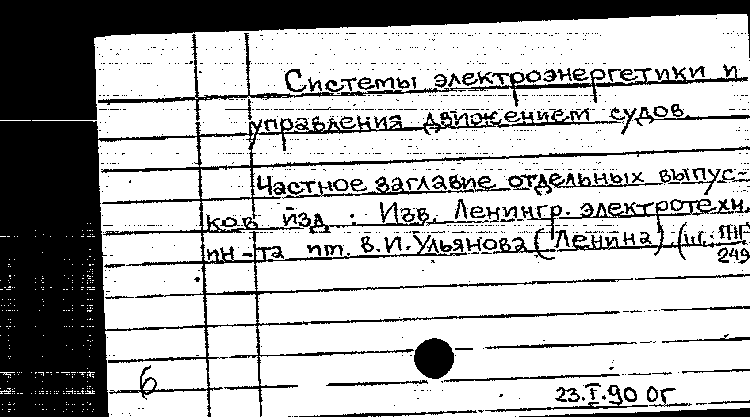 Системы электроэнергетики и
управления движением судов.
Частное заглавие отдельных выпус-
ков изд : Изв. Ленингр. электротехн.
ин-та им. В.И.Ульянова (Ленина).
249
6
23.I.90 ОГ